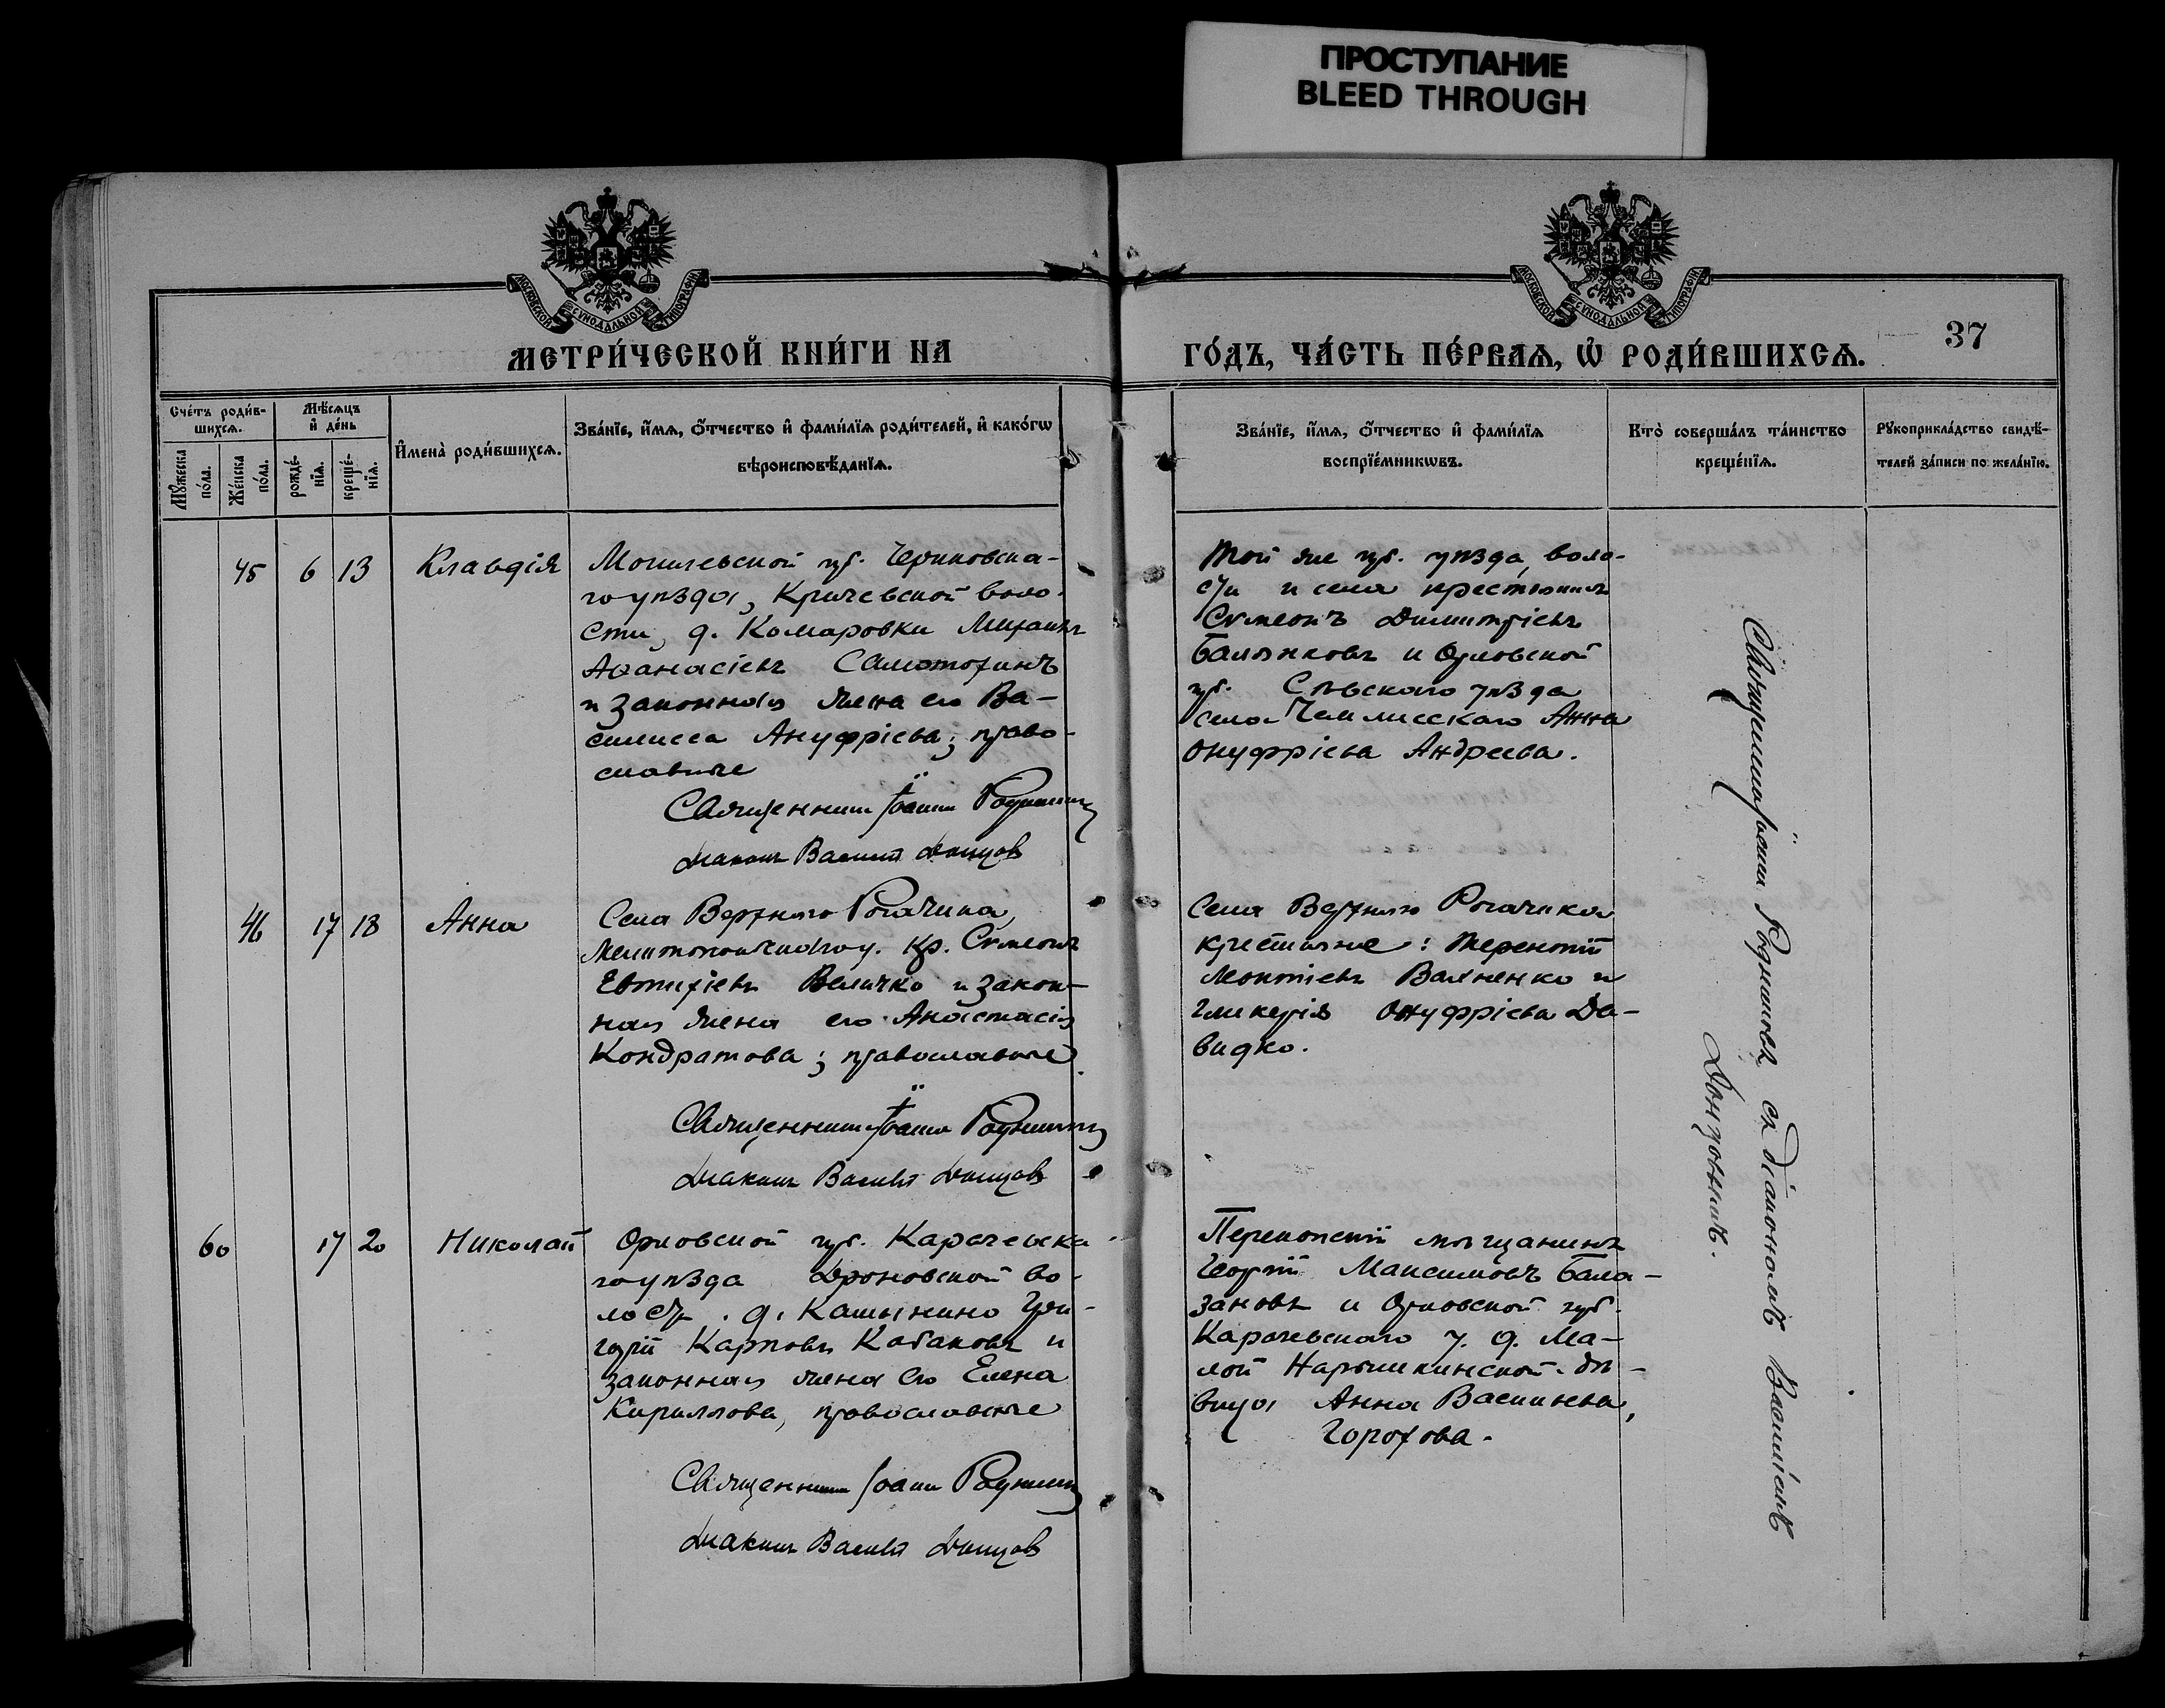 ПРОСТУПАНИЕ
BLEED THROUGH
МОСКОВСКОЙ СѴНОДАЛЬНОЙ ТИПОГРАФІИ
МОСКОВСКОЙ СѴНОДАЛЬНОЙ ТИПОГРАФІИ
МЕТРИ́ЧЕСКОЙ КНИ́ГИ НА
ГО́ДЪ, ЧА́СТЬ ПЕ́РВАѦ, Ѽ РОДИ́ВШИХСѦ.
37
Сче́тъ роди́в-
шихсѧ.
Мѣ́сѧцъ
и҆ де́нь
Мꙋ́жеска
по́ла.
Же́нска
по́ла.
рожде́-
нїѧ.
креще́-
нїѧ.
И҆мена̀ роди́вшихсѧ.
Зва́нїе, и҆́мѧ, ѻ҆́тчество и҆ фами́лїѧ роди́телей, и҆ како́гѡ
вѣроисповѣ́данїѧ.
Зва́нїе, и҆́мѧ, ѻ҆́тчество и҆ фами́лїѧ
воспрїе́мникѡвъ.
Кто̀ соверша́лъ та́инство
креще́нїѧ.
Рꙋкоприкла́дство свидѣ́-
телей за́писи по жела́нїю.
45 6 13 Клавдія
Могилевской губ. Чериковска-
го уѣзда, Кричевской воло-
сти, д. Комаровки Михаилъ
Аѳанасіевъ Самотохинъ
и законная жена его Ва-
силисса Ануфріева; право-
славные
Священникъ Іоаннъ
Діаконъ Василій Донцов
Той же губ. уѣзда, воло-
сти и села крестьянинъ
Сѵмеонъ Димитріевъ
и Орловской
губ. Сѣвскаго уѣзда
села Анна
Онуфріева Андреева.
46 17 18 Анна
Села Верхняго Рогачика,
Мелитопольскаго у. кр. Сѵмеонъ
Евтихіевъ Величко и закон-
ная жена его Анастасія
Кондратова; православные
Священникъ Іоаннъ
Діаконъ Василій Донцов
Села Верхняго Рогачика
крестьяне: Терентій
Леонтіевъ и
Гликерія Онуфріева Да-
видко.
60 17 20 Николай
Орловской губ. Карачевска-
го уѣзда Дроновской во-
лости, д. Кашинино Гри-
горій Карповъ Кабаковъ и
законная жена его Елена
Кириллова, православные
Священникъ Іоаннъ
Діаконъ Василій Донцов
Перекопскій мѣщанинъ
Георгій Максимовъ Бала-
зановъ и Орловской губ.
Карачевскаго у. д. Ма-
лой Нарышкинской дѣ-
вица Анна Васильева,
Горохова.
Священник Іоанн съ діакономъ Василіемъ
Донцовымъ.